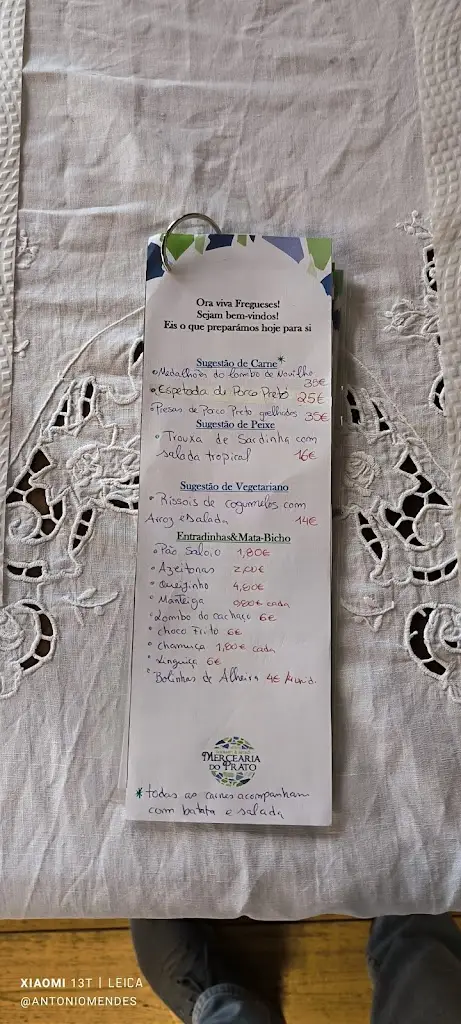 Ora viva Fregueses!
Sejam bem-vindos!
Eis o que preparámos hoje para si
Sugestão de Carne*
• Medalhões do Lombo de Novilho
38€
• Espetada de Porco Preto 25€
• Presas de Porco Preto grelhados 35€
Sugestão de Peixe
• Trouxa de Sardinha com
salada tropical 16€
Sugestão de Vegetariano
• Rissois de cogumelos com
Arroz e Salada 14€
Entradinhas&Mata-Bicho
• Pão Saloio 1,80€
• Azeitonas 2,00€
• Queijinho 4,80€
• Manteiga 0,80€ cada
• Lombo do cachaço 6€
• choco Frito 6€
• chamuça 1,80€ cada
• Linguiça 6€
• Bolinhas de Alheira 4€ /4 unid.
MERCEARIA
DO PRATO
* todas as carnes acompanham
com batata e salada
XIAOMI 13T | LEICA
@ANTONIOMENDES